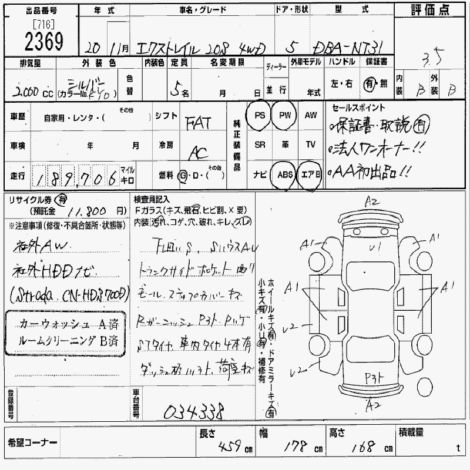 出品番号 [716] 2369
年式 20 11月
車名・グレード エクストレイル 20S 4WD
ドア・形状 5
型式 DBA-NT31
評価点 3.5
排気量 2000 cc
シルバー (カラーNo. K/0)
色替
内装色
定員 5名
名変期限 月 日
ディーラー 並行
外車モデル 年
ハンドル 左・右
保証書 有・無
内装 B 外装 B
車歴 自家用・レンタ・(その他)
シフト FAT
純正装備品 PS PW AW
セールスポイント
保証書・取説有
車検 年 月
冷房 AC
SR 革 TV
法人ワンオーナー!!
走行 189,706 マイル キロ
燃料 G・D・(その他)
ナビ ABS エアB
AA初出品!!
リサイクル券 有
(預託金 11,800 円)
※注意事項(修復・不具合箇所・状態等)
社外AW
社外HDDナビ
(Strada CN-HDS700D)
カーウォッシュ A済
ルームクリーニング B済
検査員記入
Fガラス(キズ、飛石、ヒビ割、X要)
内装(汚れ、コゲ、穴、破れ、キレ、スレ)
トランクサイドポケット
モール
Rガーニッシュ
STスレ 車内タイヤ4本有
ホイールキズ有・ドアミラーキズ有
小キズ有・小凹有・補修有
A2
A1 U1 A1
A1 A1
U2 U2
A2
登録番号
車台番号 034338
希望コーナー
長さ 459 cm
幅 178 cm
高さ 168 cm
積載量 t